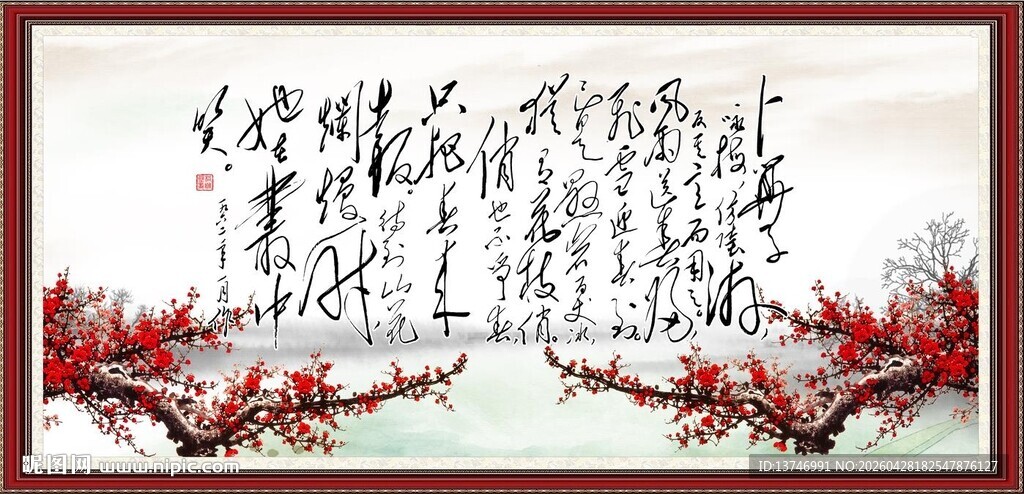 卜算子
咏梅,仿陸游,
反其意而用之。
風雨送春歸,
飛雪迎春到。
已是懸崖百丈冰,
猶有花枝俏。
俏也不爭春,
只把春來
報。待到山花
爛熳時
她在叢中
笑。
一九六二年一月作
昵图网 www.nipic.com
ID:13746991 NO:20260428182547876127